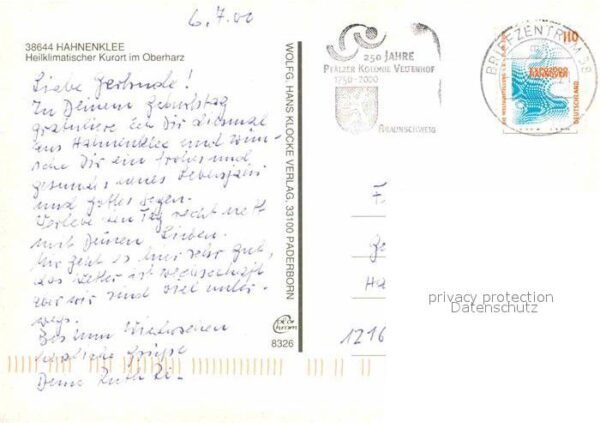 6.7.00
38644 HAHNENKLEE
Heilklimatischer Kurort im Oberharz
Liebe Gertrude!
Zu Deinem Geburtstag
gratuliere ich Dir diesmal
aus Hahnenklee und wün-
sche Dir ein frohes und
gesundes neues Lebensjahr
und Gottes Segen.
Verlebe den Tag recht nett
mit Deinen Lieben.
Mir geht es hier sehr gut,
das Wetter ist wechselhaft
aber wir sind viel unter-
wegs.
Bis zum Wiedersehen
herzliche Grüße
Deine Ruth
WOLFG. HANS KLOCKE VERLAG, 33100 PADERBORN
8326
250 JAHRE
PFÄLZER KOLONIE VELTENHOF
1750-2000
BRAUNSCHWEIG
BRIEFZENTRUM 38
110
EXPO 2000
HANNOVER
DEUTSCHLAND
F
Ge
Ha
1216
privacy protection
Datenschutz